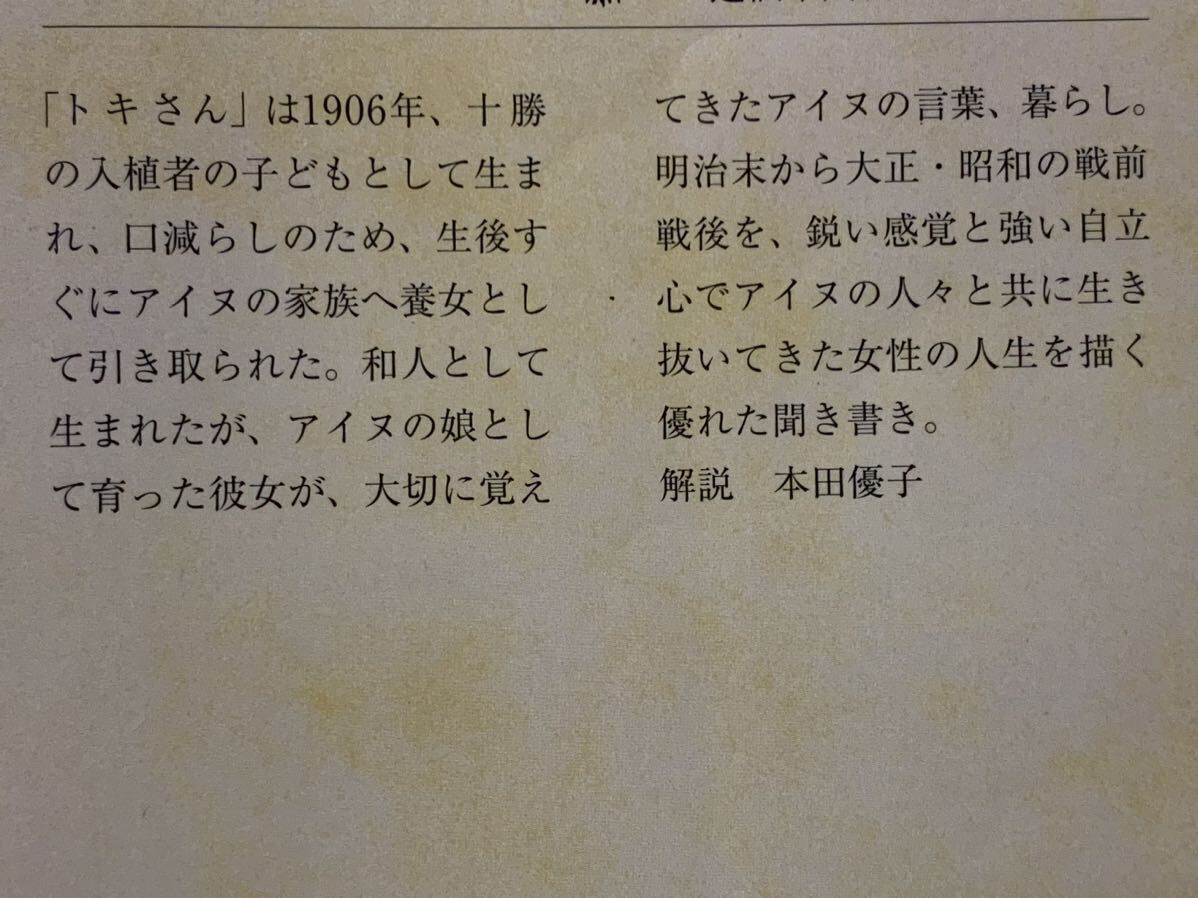 「トキさん」は1906年、十勝
の入植者の子どもとして生ま
れ、口減らしのため、生後す
ぐにアイヌの家族へ養女とし
て引き取られた。和人として
生まれたが、アイヌの娘とし
て育った彼女が、大切に覚え
てきたアイヌの言葉、暮らし。
明治末から大正・昭和の戦前
戦後を、鋭い感覚と強い自立
心でアイヌの人々と共に生き
抜いてきた女性の人生を描く
優れた聞き書き。
解説　本田優子